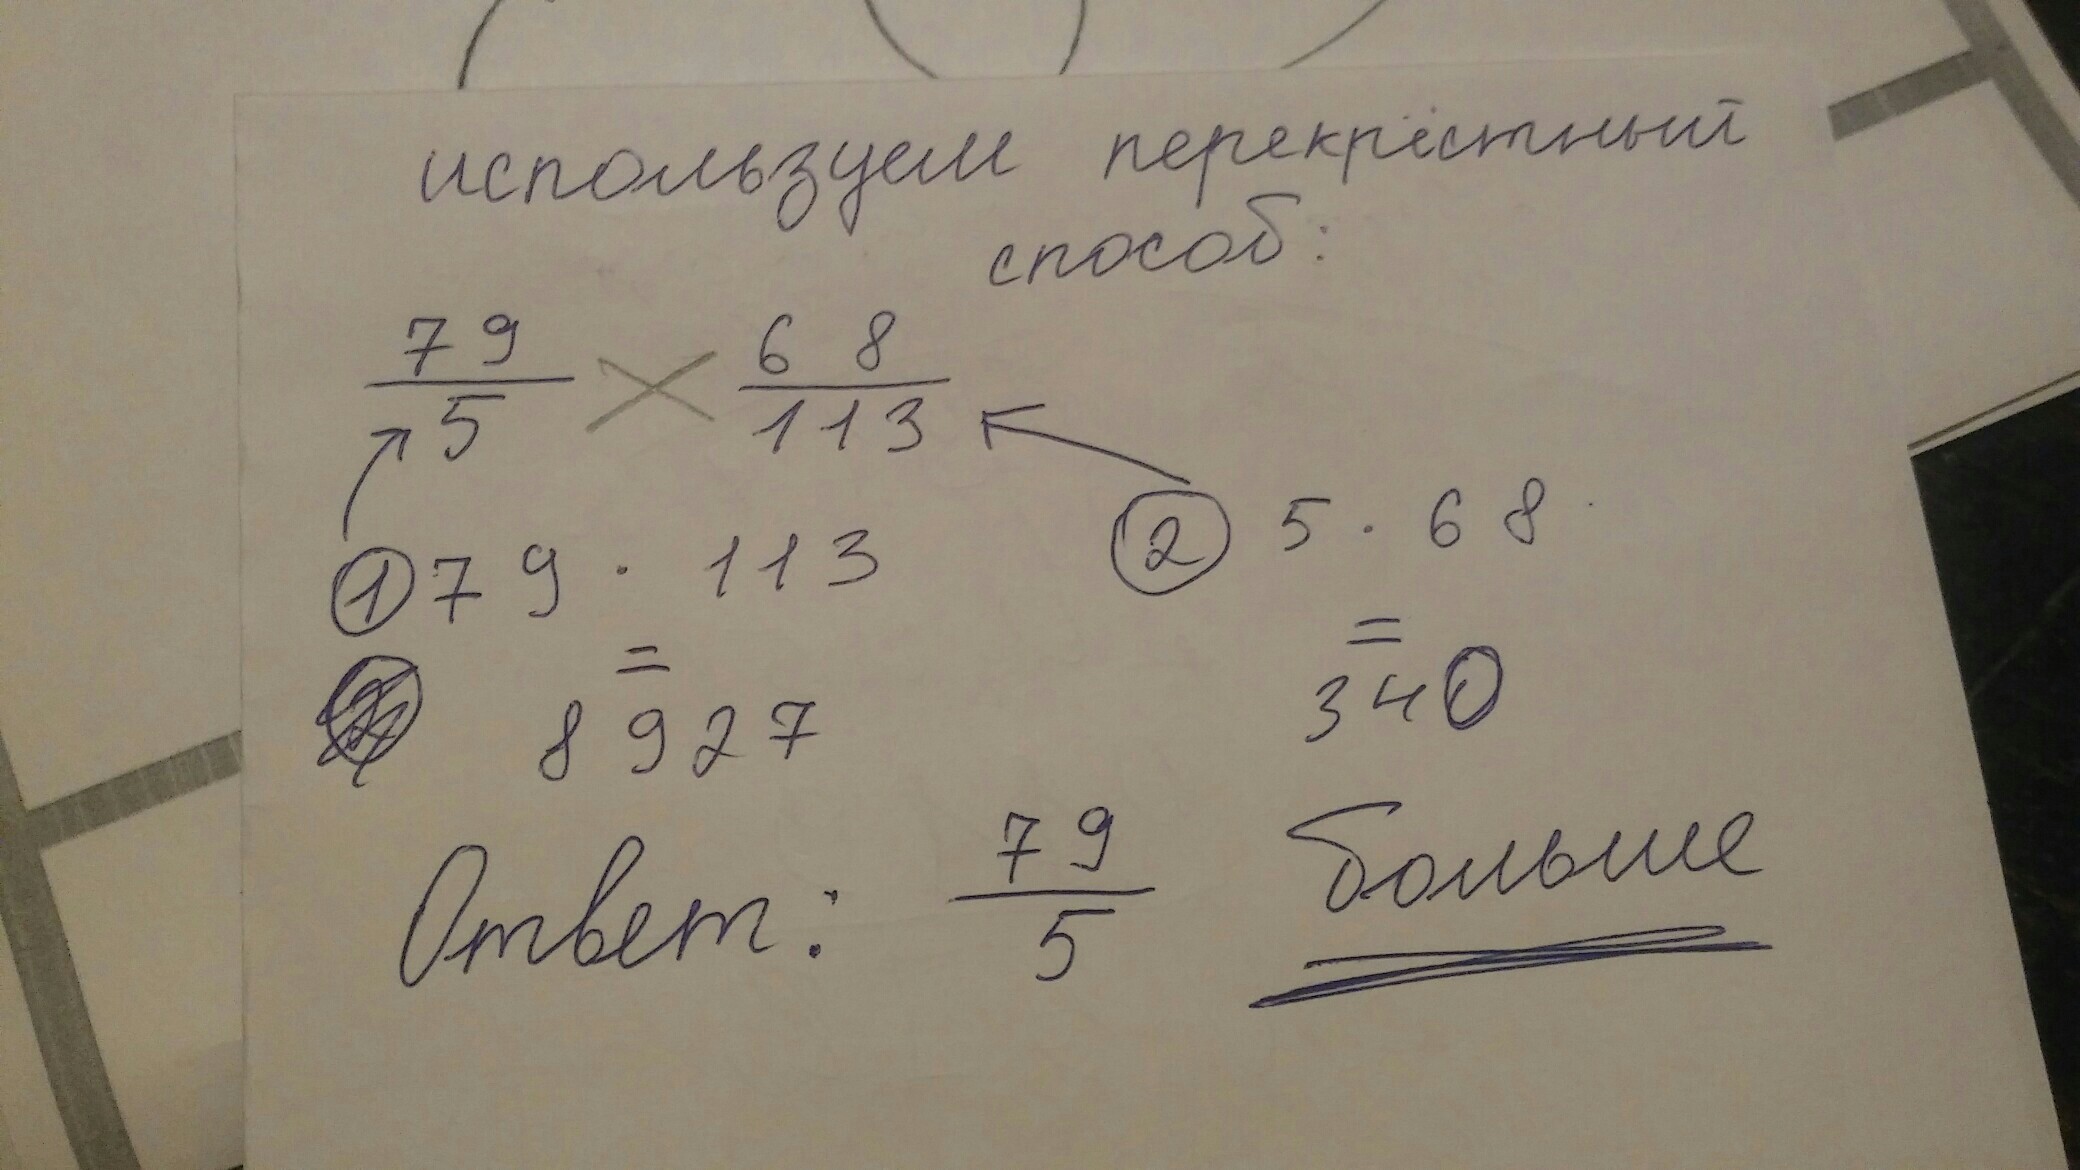 используем перекрёстный
способ:
79 68
5 113
① 79 · 113 ② 5 · 68
= =
8927 340
Ответ: 79/5 больше